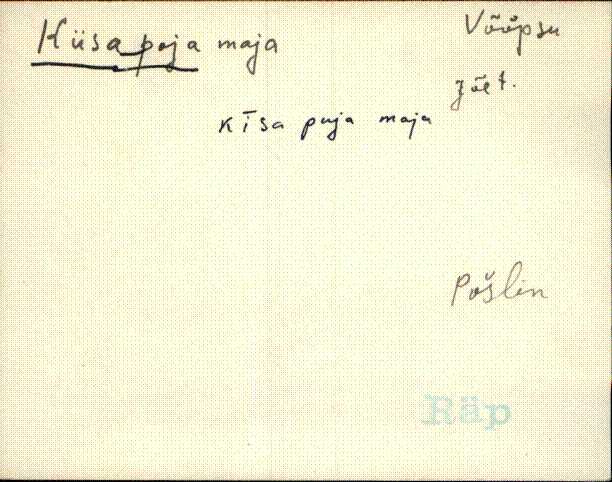 Kiisa poja maja
Vööpsu
Jõet.
kīsa puja maja
Pošlin
Räp